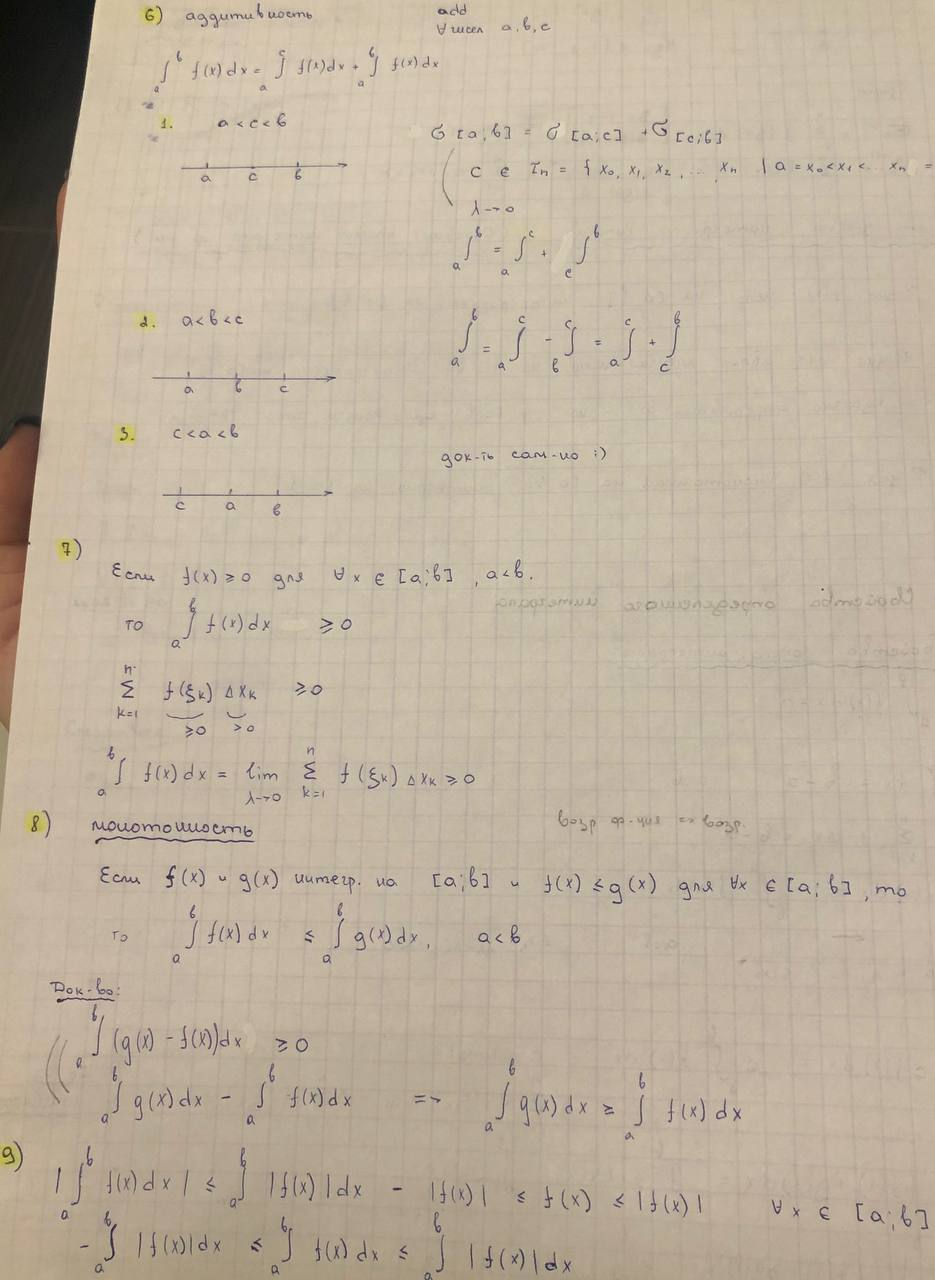 6) аддитивность add
∀ чисел a, b, c
∫_a^b f(x) dx = ∫_a^c f(x) dx + ∫_a^b f(x) dx
1. a < c < b
σ [a; b] = σ [a; c] + σ [c; b]
a c b
c ∈ τn = { x0, x1, x2, ... xn | a = x0 < x1 < ... xn =
λ→0
∫_a^b = ∫_a^c + ∫_c^b
2. a < b < c
∫_a^b = ∫_a^c - ∫_b^c = ∫_a^c + ∫_c^b
a b c
3. c < a < b
док-ть сам-но :)
c a b
7)
Если f(x) ≥ 0 для ∀ x ∈ [a; b], a < b.
то ∫_a^b f(x) dx ≥ 0
∑_{k=1}^n f(ξk) Δxk ≥ 0
≥0 >0
∫_a^b f(x) dx = lim_{λ→0} ∑_{k=1}^n f(ξk) Δxk ≥ 0
8) монотонность
Если f(x) и g(x) интегр. на [a; b] и f(x) ≤ g(x) для ∀x ∈ [a; b], то
то ∫_a^b f(x) dx ≤ ∫_a^b g(x) dx, a < b
Док-во:
∫_a^b (g(x) - f(x)) dx ≥ 0
∫_a^b g(x) dx - ∫_a^b f(x) dx => ∫_a^b g(x) dx ≥ ∫_a^b f(x) dx
9)
| ∫_a^b f(x) dx | ≤ ∫_a^b |f(x)| dx - |f(x)| ≤ f(x) ≤ |f(x)| ∀ x ∈ [a; b]
- ∫_a^b |f(x)| dx ≤ ∫_a^b f(x) dx ≤ ∫_a^b |f(x)| dx